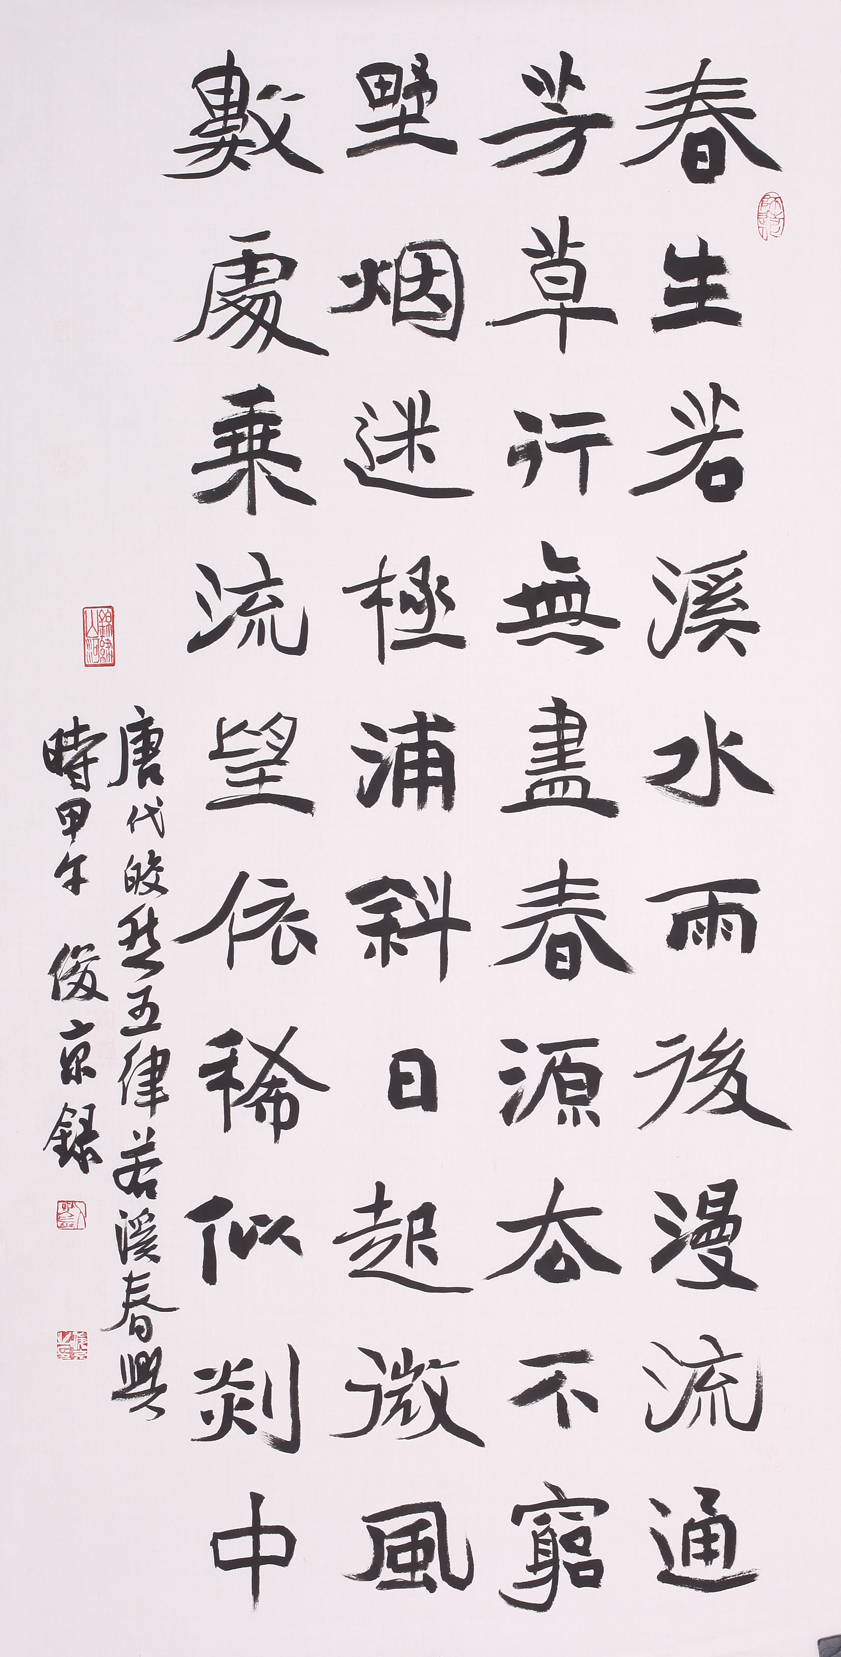 春生若溪水雨後漫流通
芳草行無盡春源去不窮
墅烟迷極浦斜日起微風
數處乗流望依稀似剡中
唐代皎然五律若溪春興
時甲午 俊京録
錦繡山河